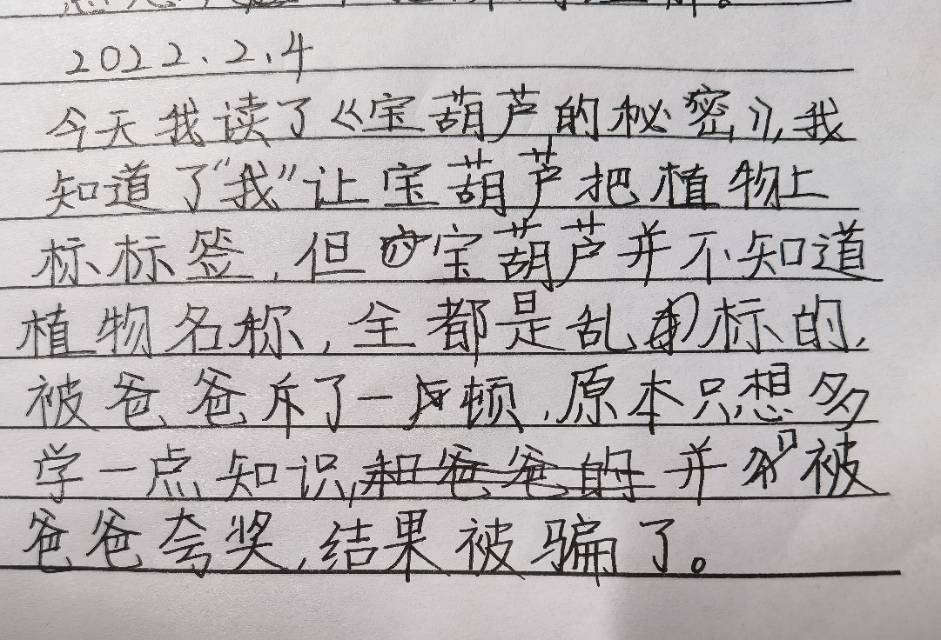 2022.2.4
今天我读了《宝葫芦的秘密》,我
知道了“我”让宝葫芦把植物上
标标签,但宝葫芦并不知道
植物名称,全都是乱标的,
被爸爸斥了一顿,原本只想多
学一点知识,和爸爸的并被
爸爸夸奖,结果被骗了。